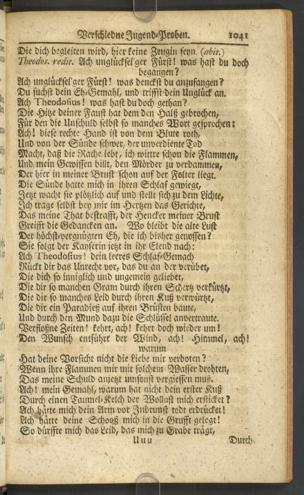 Verschiedne Jugend-Proben. 1041
Die dich begleiten wird, hier keine Zeugin seyn. (abit.)
Theodos. redit. Ach unglücksel'ger Fürst! was hast du doch
begangen?
Ach unglücksel'ger Fürst! was denckst du anzufangen?
Du suchst dein Eh-Gemahl, und triffst dein Unglück an.
Ach Theodosius! was hast du doch gethan?
Die Hitze deiner Faust hat dem den Halß gebrochen,
Für der die Unschuld selbst so manches Wort gesprochen:
Ach! diese rechte Hand ist von dem Blute roth,
Und von der Sünde schwer, der unverdiente Tod
Macht, daß die Rache lebt, ich wittre schon die Flammen,
Und mein Gewissen hilft, den Mörder zu verdammen,
Der hier in meiner Brust schon auf der Folter liegt.
Die Sünde hatte mich in ihren Schlaf gewiegt,
Jetzt wacht sie plötzlich auf und stellt sich zu dem Lichte,
Ich trage selbst bey mir im Hertzen das Gerichte,
Das meine That bestrafft, der Hencker meiner Brust
Greifft die Gedancken an. Wo bleibt die alte Lust
Der höchst-vergnügten Eh, die ich bisher genossen?
Sie folgt der Kayserin jetzt in ihr Elend nach:
Ach Theodosius! dein leeres Schlaf-Gemach
Rückt dir das Unrecht vor, das du an der verübet,
Die dich so inniglich und ungemein geliebet,
Die dir so manchen Gram durch ihren Schertz verkürtzt,
Die dir so manches Leid durch ihren Kuß verwürtzt,
Die dir ein Paradieß auf ihren Brüsten baute,
Und durch den Mund dazu die Schlüssel anvertraute.
Verfloßne Zeiten! kehrt, ach! kehrt doch wieder um!
Den Wunsch entführt der Wind, ach! Himmel, ach!
warum
Hat deine Vorsicht nicht die Liebe mir verboten?
Wenn ihre Flammen mir mit solchem Wasser drohten,
Das meine Schuld anjetzt umsonst vergiessen muß.
Ach! mein Gemahl, warum hat nicht dein erster Kuß
Durch einen Taumel-Kelch der Wollust mich ersticket?
Ach hätte mich dein Arm vor Inbrunst todt erdrücket!
Ach hätte deine Schooß mich in die Grufft gelegt!
So dürffte mich das Leid, das mich zu Grabe trägt,
Uuu Durch